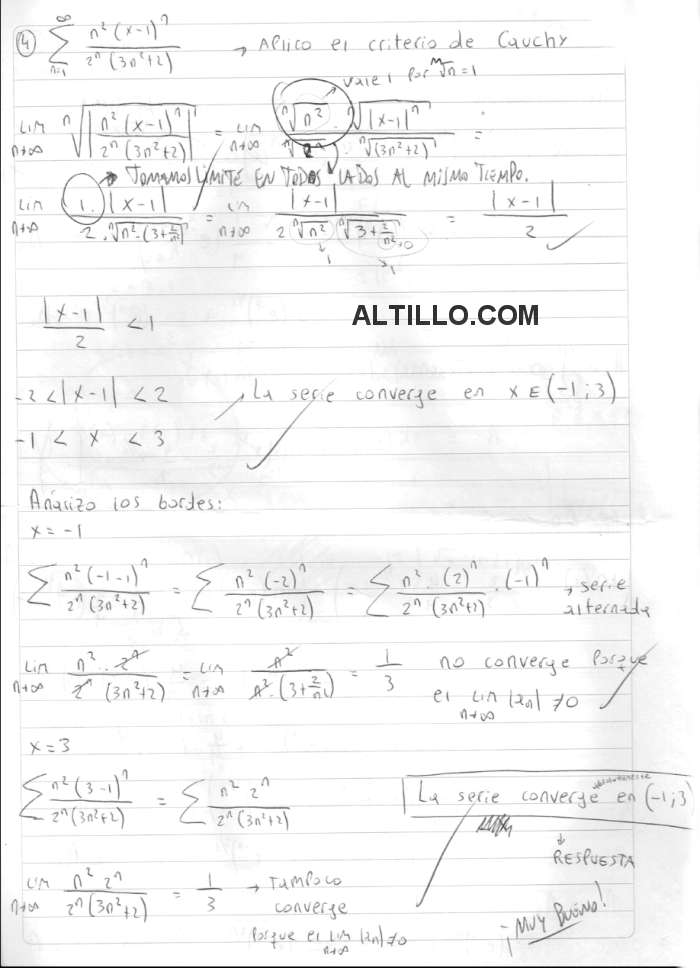 ④ ∞ ∑ n=1 n² (x-1)ⁿ / 2ⁿ (3n²+2) → Aplico el criterio de Cauchy
vale 1 por ⁿ√n = 1
Lim n→∞ ⁿ√|n² (x-1)ⁿ / 2ⁿ (3n²+2)| = Lim n→∞ ⁿ√n² · ⁿ√|x-1|ⁿ / ⁿ√2ⁿ ⁿ√(3n²+2) =
→ TOMAMOS LÍMITE EN TODOS LADOS AL MISMO TIEMPO.
Lim n→∞ 1·|x-1| / 2·ⁿ√n²·(3+2/n²) = Lim n→∞ |x-1| / 2 ⁿ√n² ⁿ√3+2/n² = |x-1| / 2
→0
1 →1
|x-1| / 2 < 1
ALTILLO.COM
-2 < |x-1| < 2 → La serie converge en x ∈ (-1; 3)
-1 < x < 3
Analizo los bordes:
x = -1
∑ n² (-1-1)ⁿ / 2ⁿ (3n²+2) = ∑ n² (-2)ⁿ / 2ⁿ (3n²+2) = ∑ n² · (2)ⁿ / 2ⁿ (3n²+2) · (-1)ⁿ → serie
alternada
Lim n→∞ n² · 2ⁿ / 2ⁿ (3n²+2) = Lim n→∞ n² / n² · (3+2/n) = 1/3 no converge porque
el Lim n→∞ |an| ≠ 0
x = 3
∑ n² (3-1)ⁿ / 2ⁿ (3n²+2) = ∑ n² 2ⁿ / 2ⁿ (3n²+2)
La serie converge absolutamente en (-1; 3)
↓
RESPUESTA
Lim n→∞ n² 2ⁿ / 2ⁿ (3n²+2) = 1/3 → Tampoco
converge
Porque el Lim n→∞ |an| ≠ 0
¡MUY BUENO!